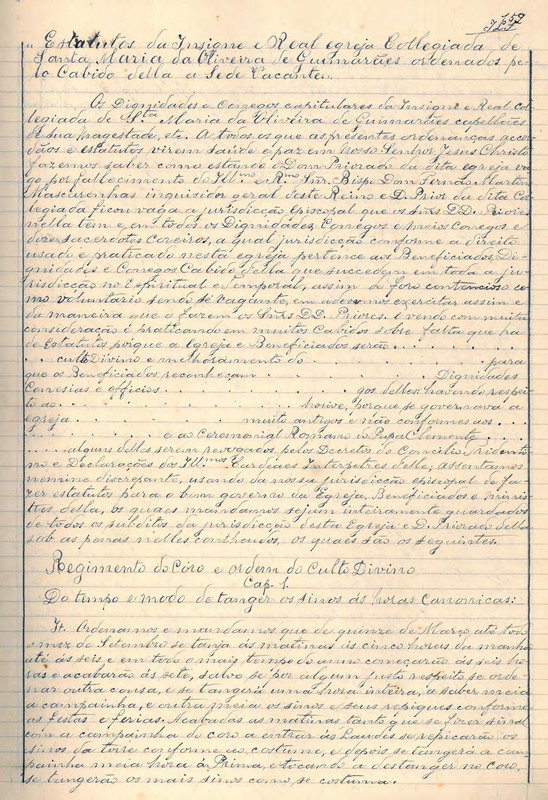 „Estatutos da Insigne e Real egreja Collegiada de
Santa Maria da Oliveira de Guimarães ordenados pe-
lo Cabido della a Sede Vacante„.
Os Dignidades e Conegos capitulares da Insigne e Real Col-
legiada de Sta Maria da Oliveira de Guimarães capellães
de sua magestade, etc. A todos os que as presentes ordenanças, accor-
dãos e estatutos virem saúde e paz em Nosso Senhor Jesus Christo
fazemos saber como estando o Dom Priorado da dita egreja va-
go por fallecimento do Illmo e Rmo Snr. Bispo Dom Fernão Martins
Mascarenhas inquisidor geral deste Reino e D. Prior da dita Col-
legiada ficou vaga a jurisdicção Episcopal que os Snrs DD. Priores
nella têm e em todos os Dignidades, Conegos e meios Conegos e
doze sacerdotes Coreiros, a qual jurisdicção conforme a direito
usado e praticado nesta egreja pertence aos Beneficiados, Di-
gnidades e Conegos Cabido della que succedem em toda a ju-
risdicção no Espiritual e temporal, assim do foro contencioso co-
mo voluntario sendo sé vagante, em a devermos exercitar assim e
da maneira que o fazem os Snrs DD. Priores. E vendo com muita
consideração e praticando em muitos Cabidos sobre falta que ha
de Estatutos porque a Egreja e Beneficiados serão . . .
. . . culto Divino e melhoramento do . . . para
que os Beneficiados reconheçam . . . Dignidades
Conesias e officios . . . gos delles: havendo respei-
to ao . . . houve, porque se governava a
egreja . . . muito antigos e não conformes aos . . .
. . . e ao Ceremonial Romano do Papa Clemente . . .
. . . alguns delles serem revogados pelos Decretos do Concilio Tridenti-
no e Declarações dos Illmos Cardeaes Interpetres delle, assentamos
nemine discrepante, usando da nossa jurisdicção episcopal de fa-
zer estatutos para o bom governo da Egreja, Beneficiados e minis-
tros della, os quaes mandamos sejam inteiramente guardados
de todos os subditos da jurisdicção desta Egreja e D. Priorado della
sob as penas nelles conthiudas, os quaes são os seguintes.
Regimento do Côro e ordem do Culto Divino
Cap. 1.
Do tempo e modo de tanger os sinos ás horas Canonicas:
It. Ordenamos e mandamos que de quinze de Março, até todo
o mez de Setembro se tanja ás matinas ás cinco horas da manhã
até ás seis e em todo o mais tempo do anno começarão ás seis ho-
ras e acabarão ás sete, salvo se por algum justo respeito se orde-
nar outra cousa, e se tangerá uma hora inteira, a saber meia
a campainha, e outra meia os sinos e seus repiques conforme
as festas e ferias. Acabadas as matinas tanto que se fizer signal
com a campainha do coro a entrar ás Laudes se repicarão os
sinos da torre conforme ao costume, e depois se tangerá a cam-
painha meia hora á Prima, e tocando a destanger no Coro,
se tangerão os mais sinos como se costuma.